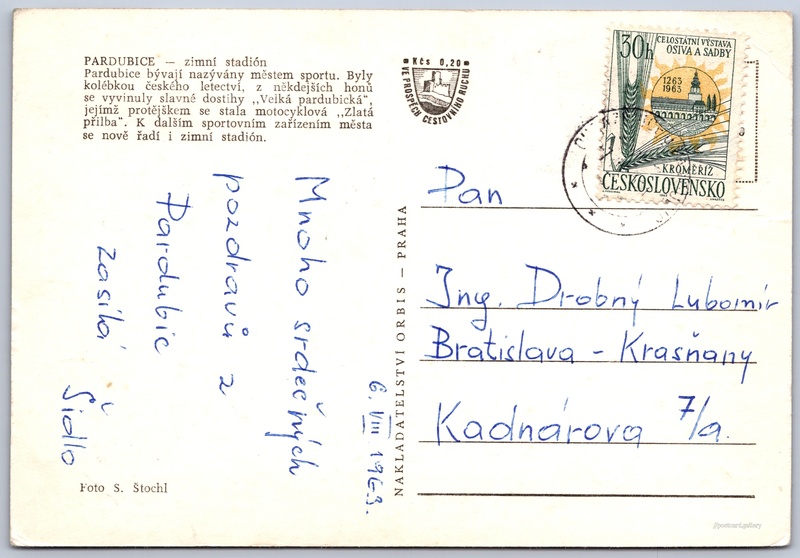 PARDUBICE — zimní stadión
Pardubice bývají nazývány městem sportu. Byly
kolébkou českého letectví, z někdejších honů
se vyvinuly slavné dostihy ,,Velká pardubická",
jejímž protějškem se stala motocyklová ,,Zlatá
přilba". K dalším sportovním zařízením města
se nově řadí i zimní stadión.
Kčs 0,20
VE PROSPĚCH CESTOVNÍHO RUCHU
30h
CELOSTÁTNÍ VÝSTAVA
OSIVA A SADBY
1263
1963
KROMĚŘÍŽ
ČESKOSLOVENSKO
Mnoho srdečných
pozdravů z
Pardubic
zasílá
Šidlo
6. VIII 1963.
NAKLADATELSTVÍ ORBIS — PRAHA
Pan
Ing. Drobný Lubomír
Bratislava - Krasňany
Kadnárova 7/a.
Foto S. Štochl